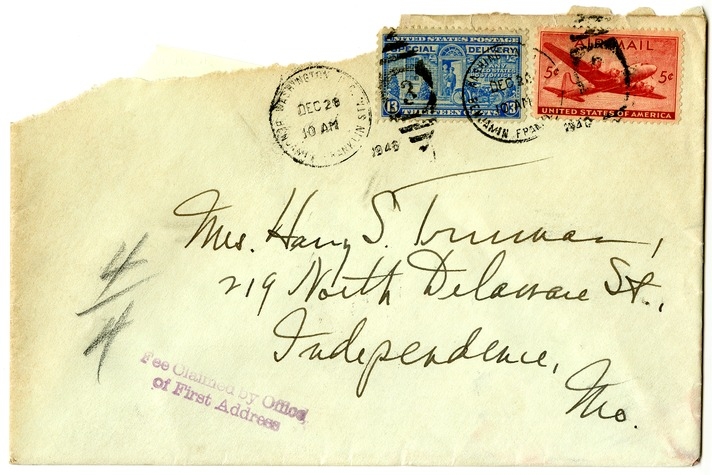 UNITED STATES POSTAGE
SPECIAL DELIVERY
13 13
THIRTEEN CENTS
AIR MAIL
5¢ 5¢
UNITED STATES OF AMERICA
WASHINGTON
DEC 28
10 AM
1946
BENJAMIN FRANKLIN
DEC 28
10 AM
BENJAMIN FRANKLIN
1946
Mrs. Harry S. Truman,
219 North Delaware St.,
Independence,
Mo.
4/4
Fee Claimed by Office
of First Address